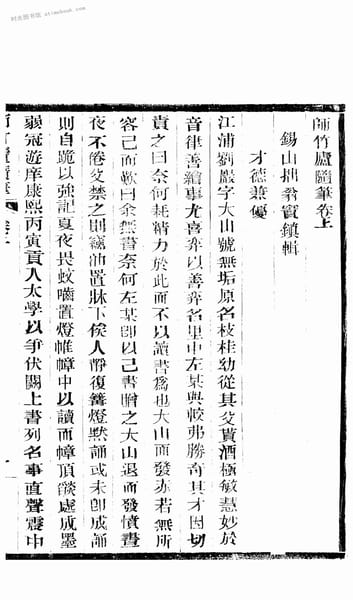 时光图书馆 atimebook.com
師竹廬隨筆卷上
錫山拙翁竇鎮輯
才德兼優
江浦劉巖字大山號無垢原名枝桂幼從其父賣酒極敏慧妙於
音律善繪事尤喜弈以善弈名里中左某與較弗勝奇其才因切
責之曰奈何耗精力於此而不以讀書為也大山而發赤若無所
容已而歎曰余無書奈何左某卽以己書贈之大山退而發憤晝
夜不倦父禁之則竊油置牀下俟人靜復篝燈默誦或未卽成誦
則自跪以強記夏夜畏蚊嚙置燈帷幛中以讀而幛頂燄處成墨
弱冠遊庠康熙丙寅貢入太學以爭伏闕上書列名事直聲震中